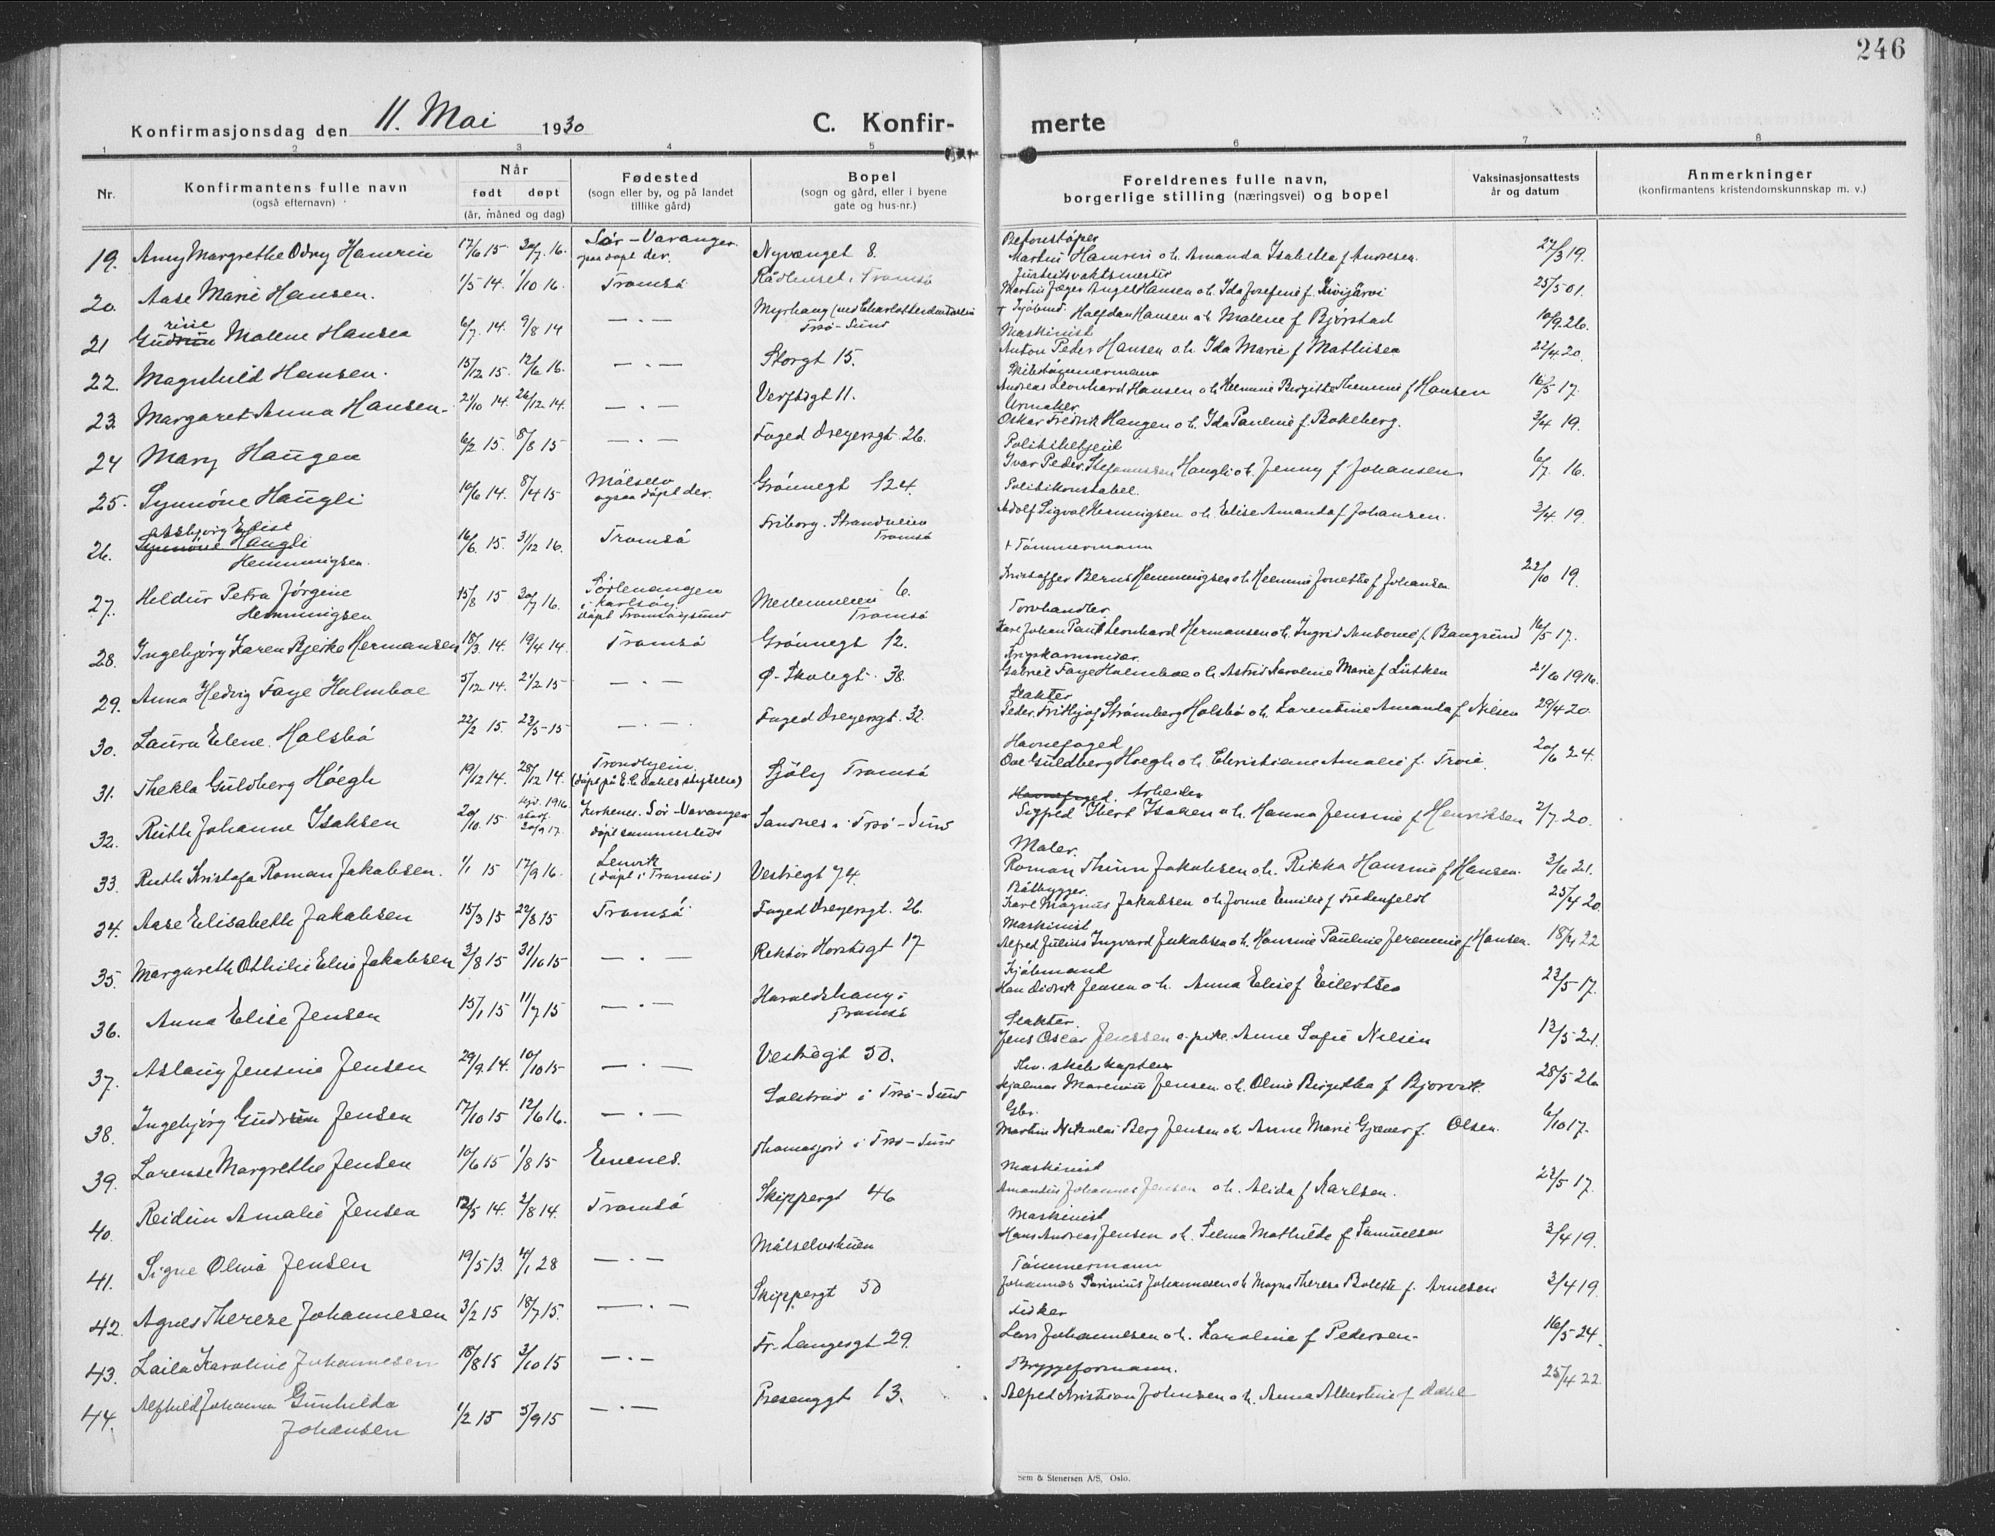 246
Konfirmasjonsdag den 11. Mai 1930
C. Konfir- merte
1 2 3 4 5 6 7 8
Nr.
Konfirmantens fulle navn
(også efternavn)
Når
født døpt
(år, måned og dag)
Fødested
(sogn eller by, og på landet
tillike gård)
Bopel
(sogn og gård, eller i byene
gate og hus-nr.)
Foreldrenes fulle navn,
borgerlige stilling (næringsvei) og bopel
Vaksinasjonsattests
år og datum
Anmerkninger
(konfirmantens kristendomskunnskap m. v.)
19. Anny Margrethe Odny Hamrin 17/6 15. 30/7. 16. Sør-Varanger. ogsaa døpt der. Nyvænget 8. Betonstøper Martin Hamrin o.h. Amanda Isabella f. Andresen. 27/3 19.
20. Aase Marie Hansen. 1/5 14. 1/10 16. Tromsø Rådhuset, Tromsø Justitsvaktmester Martin Jæger Angel Hansen o.h. Ida Josefine f. Kivijärvi 25/5 01.
21 Gudrine Malene Hansen 6/7. 14. 9/8 14 — . — Tsø-Sund + Halfdan Hansen o.h. Malene f. Bjørstad 10/9. 26.
22. Magnhild Hansen. 15/12 15. 12/6 16. — . — Storgt 15. Maskinist Anton Peder Hansen o.h. Ida Marie f. Mathisen 22/4 20.
23. Margaret Anna Hansen. 21/10 14. 26/12 14. — . — Verftsgt 11. Skibstømmermann Andreas Leonhard Hansen o.h. Hemmine f. Hansen 16/5 17.
24 Mary Haugen 6/2 15. 8/8 15 — . — Foged Dreyersgt. 26. Urmaker Oskar Fredrik Haugen o.h. Ida Pauline f. Bakeberg. 3/4 19.
25. Synnöve Haugli 10/6 14. 8/4 15 Målselv ogsaa døpt der. Grönnegt 124. Politibetjent Ivar Peder Stefanussen Haugli o.h. Jenny f. Johansen 6/7. 16.
26. Asbjørg Elise Synnöve Haugli Hemmingsen. 16/6. 15. 31/12 16. Tromsö Friborg. Strandveien Tromsö Politikonstabel. Adolf Sigval Hemmingsen o.h. Elise Amanda f. Johansen. 3/4. 19.
27. Heldur Petra Jørgine Hemmingsen 15/8 15 30/7 16. Sørlenangen i Karlsøy. døpt Tromsøysund 6. Tromsö + Tømmermann Kristoffer Hemmingsen o.h. Hemmine Jonette f. Johansen 22/10 19.
28. Ingebjørg Karen Bjerke Hermansen 18/3 14. 19/4 14. Tromsö Grönnegt 12. Torvhandler. Karl Johan Paul Leonhard Hermansen o.h. Ingrid Antonie f. Bangsund 16/5 17.
29. Anna Hedvig Faye Holmboe 5/12 14. 21/2 15 — . — Ø. Skolegt. 38. Krigskommisær. Gabriel Faye Holmboe o.h. Astrid Karoline Marie f. Lütken 21/6 1916.
30. Laura Elene. Holsbö 22/2 15. 23/5-15 — . — Foged Dreyersgt. 32. Slakter Peder Frithjof Strömberg Holsbö o.h. Larentine Amanda f. Nilsen 29/4 20.
31. Thekla Guldberg Höegh 19/12 14. 28/12 14. Trondhjem. (døpt på E.C. Dahls stiftelse) Sjöly Tromsö Havnefoged Ove Guldberg Høegh o.h. Christiane Amalie f. 20/6 24.
32. Ruth Johanne Isaksen 20/10 15 1916. 20/9 17. Kirkenes. Sør-Varanger döpt sammesteds Sandnes i Tsö-Sund Havnefoged. Arbeider Sigfred Isaksen o.h. Hanna Jensine f. Henriksen 2/7. 20.
33. Ruth Kristofa Roman Jakobsen. 1/1 15 17/9 16. Lenvik (døpt i Tromsö) Vestregt 74. Maler. Roman Jakobsen o.h. Rikka Hansine f. Hansen. 3/6 21.
34. Aase Elisabeth Jakobsen 15/3 15 22/8 15 Tromsö Foged Dreyersgt. 26. Båtbygger. Karl Magnus Jakobsen o.h. Jonne Emilie f. Fredenfeldt 25/4 20
35. Margareth Othilie Elise Jakobsen 3/8 15 31/10 15 — . — Rektor Horstsgt 17 Maskinist Alfred Julius Ingvard Jakobsen o.h. Hansine Pauline Jeremine f. Hansen. 18/4 22
36. Anna Elise Jensen 15/1 15 11/7 15 — . — Haraldshaug i Tromsö Kjøbmand Hans Didrik Jensen o.h. Anna Elise f. Eilertsen 23/5 17.
37. Aslaug Jensine Jensen 29/9. 14. 10/10 15 — . — Vestregt 50. Slakter. Jens Oscar Jenssen o. Anne Sofie Nilsen 12/5 21.
38. Ingebjörg Gudrun Jensen 17/10 15 12/6 16. — . — Solstrand i Tsö-Sund Hjalmar Marenius Jensen o.h. Oline Birgitha f. Bjorvik. 28/5 26
39. Lorense Margrethe Jensen 10/6 15 1/8 15 Evenes. Thomasjord i Tsö-Sund Gbr. Martin Nikolai Berg Jensen o.h. Anne Marie Gjæver f. Olsen. 6/10 17.
40. Reidun Amalie Jensen 12/5 14. 2/8 14. Tromsö Skippergt 46 Maskinist Amandus Johannes Jensen o.h. Alida f. Karlsen. 23/5 17.
41. Signe Olivia Jensen 19/5 13. 4/1 28 — . — Målselvskuen Maskinist Hans Andreas Jensen o.h. Selma Mathilde f. Samuelsen 3/4 19.
42. Agnes Therese Johannesen 3/2 15 18/7 15. — . — Skippergt 50 Tömmermann Johannes Johannesen o.h. Magna Therese Bolette f. Arnesen 3/4 19.
43. Laila Karoline Johannesen 18/8 15 3/10 15 — . — Fr. Langesgt 29. Fisker Lars Johannesen o.h. Karoline f. Pedersen- 16/5 24.
44. Alfhild Johanna Gunhilda Johansen 1/2 15 5/9 15 — . — 13. Bryggeformann. Alfred Kristian Johnsen o.h. Anna Albertine f. Dahl 25/4 22.
Sem & Stenersen A/S, Oslo.